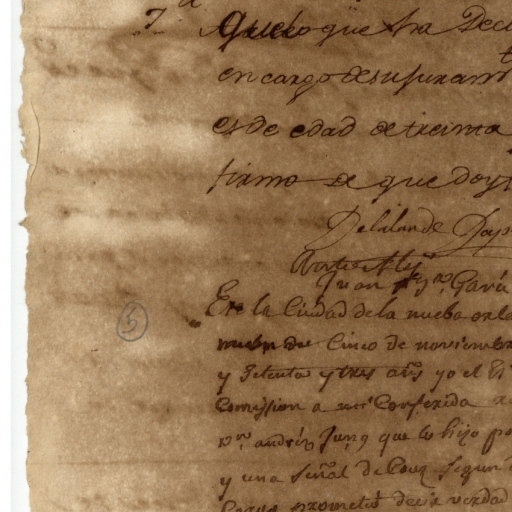 7 a
que lo que ha Decl
en cargo de su juramt
es de edad de treinta
firmo de que doy f
Delalande Dap
Ante My
Juan Garic
En la Ciudad de la nueba orle
Cinco de noviembre
y Setenta y tres años yo el Es
Comission a mi Conferida
Dn andrés Jung que lo hizo po
y una Señal de Cruz Segun
Cargo prometió decir verdad
5